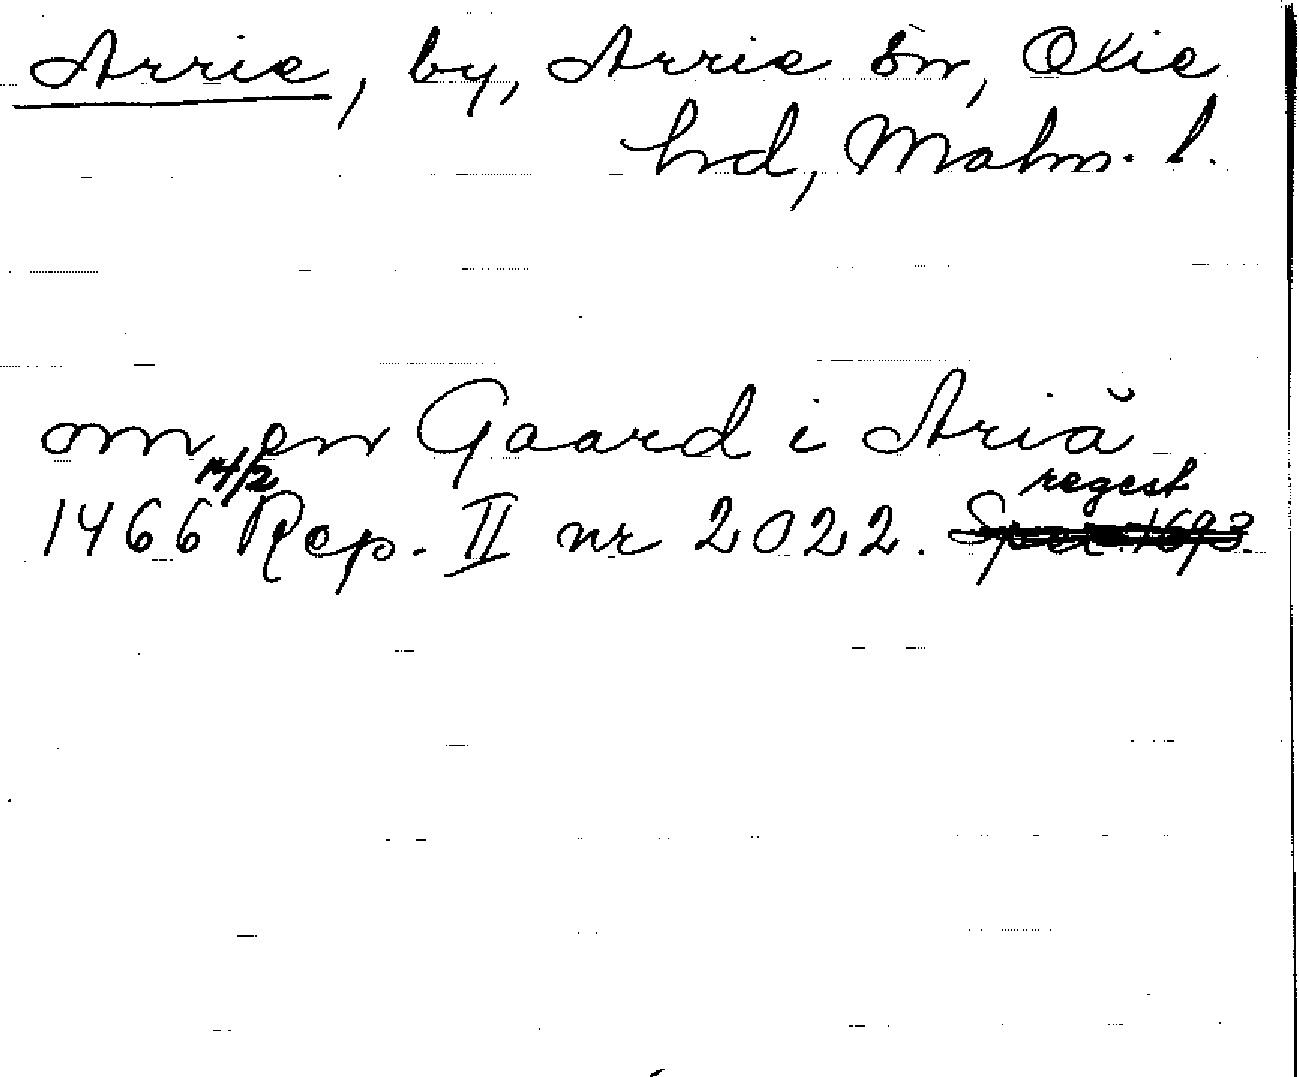 Arrie, by, Arrie sn, Oxie
hd, Malm. l.
om en Gaard i Ariă
14/2 regest
1466 Rep. II nr 2022.